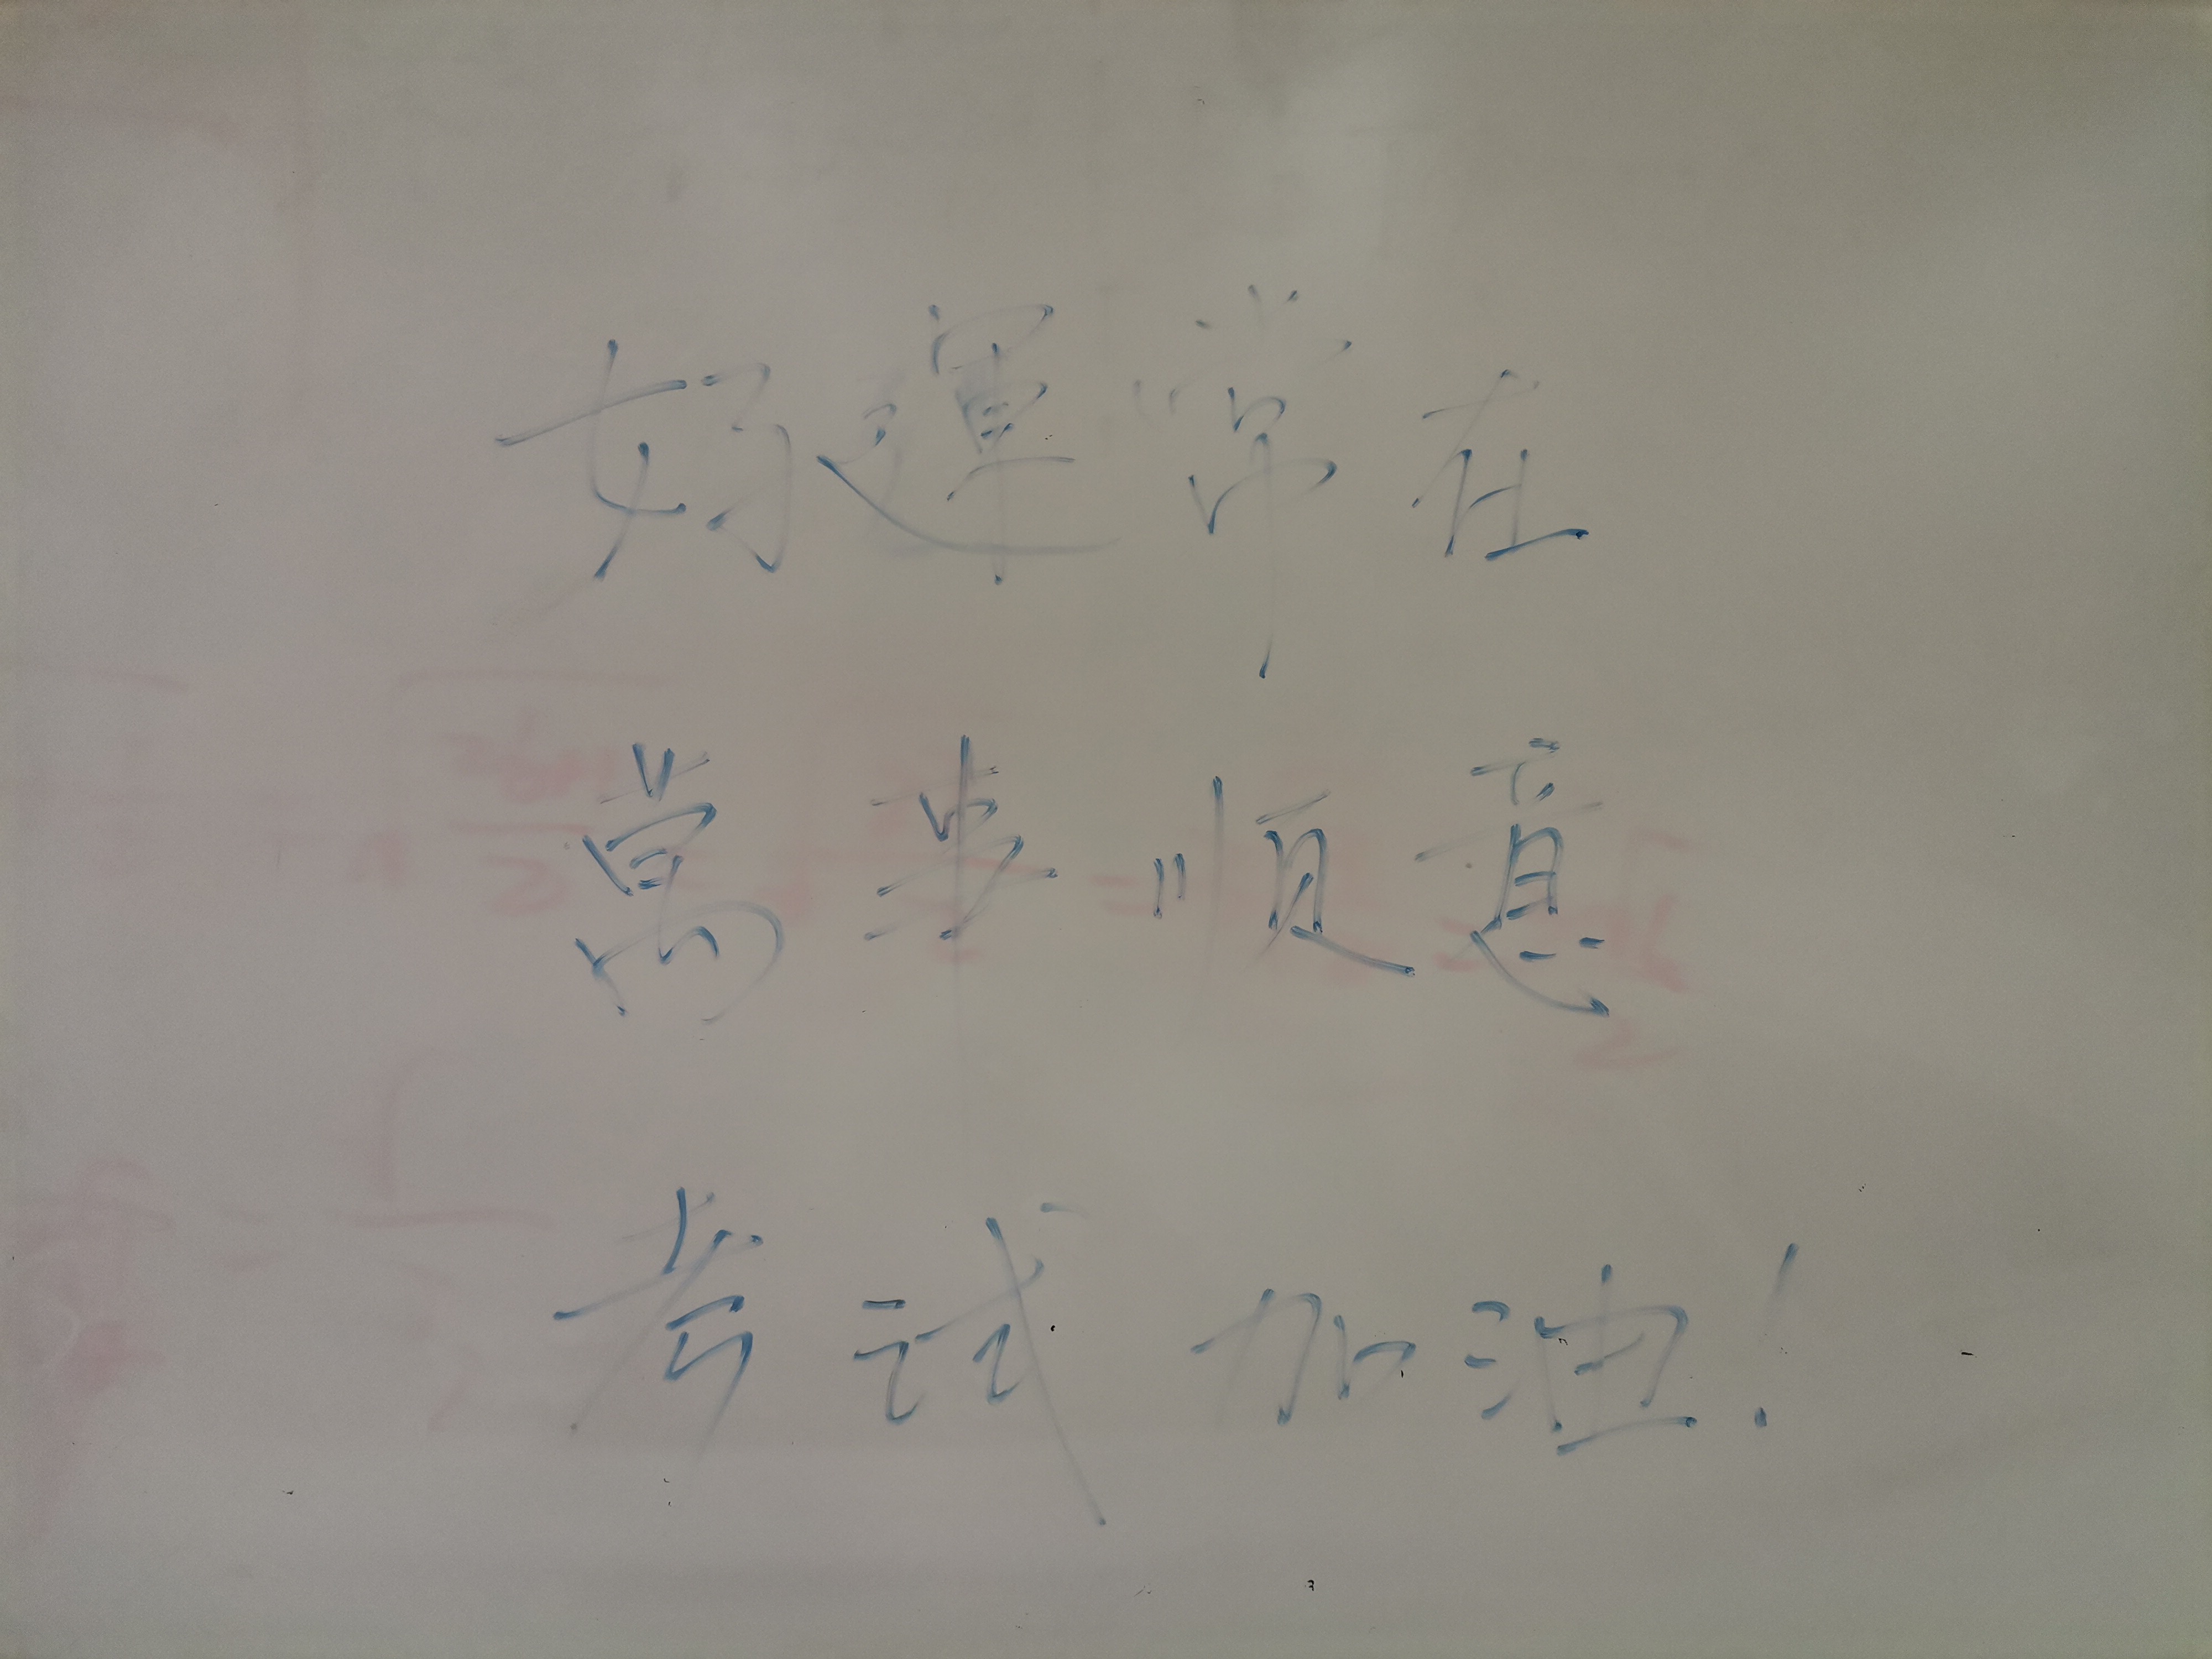 好運常在
萬事順意
考试加油!